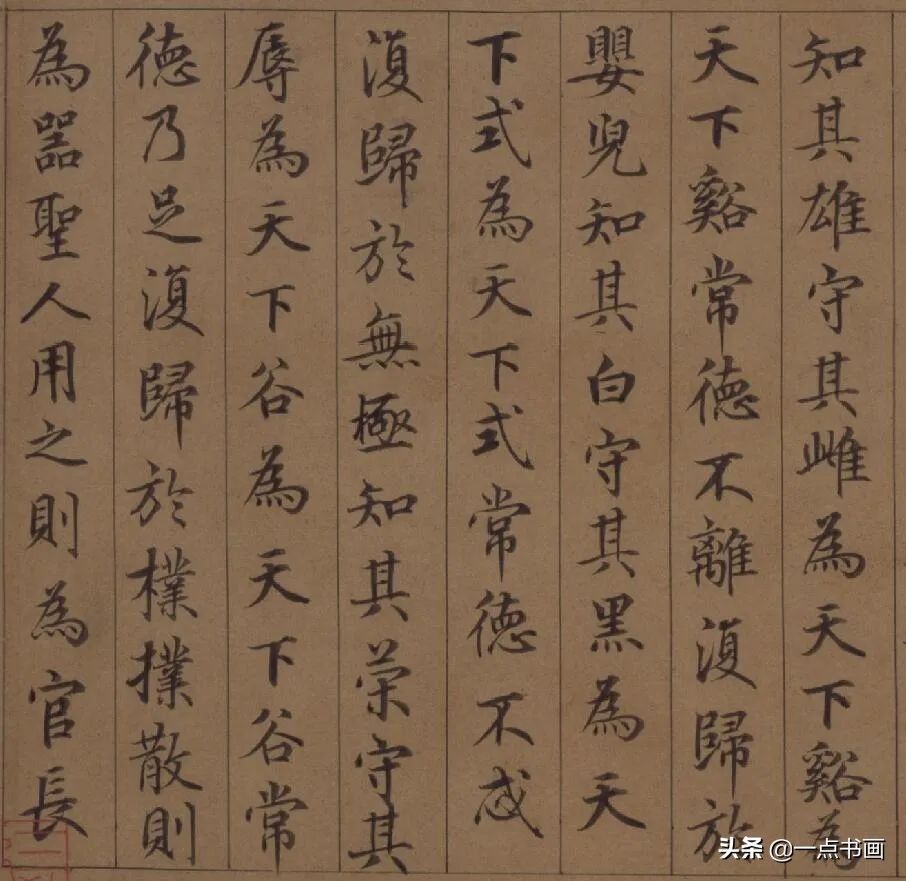 知其雄守其雌為天下谿為
天下谿常徳不離復歸於
嬰兒知其白守其黑為天
下式為天下式常徳不忒
復歸於無極知其榮守其
辱為天下谷為天下谷常
徳乃足復歸於樸撲散則
為噐聖人用之則為官長
头条 @一点书画